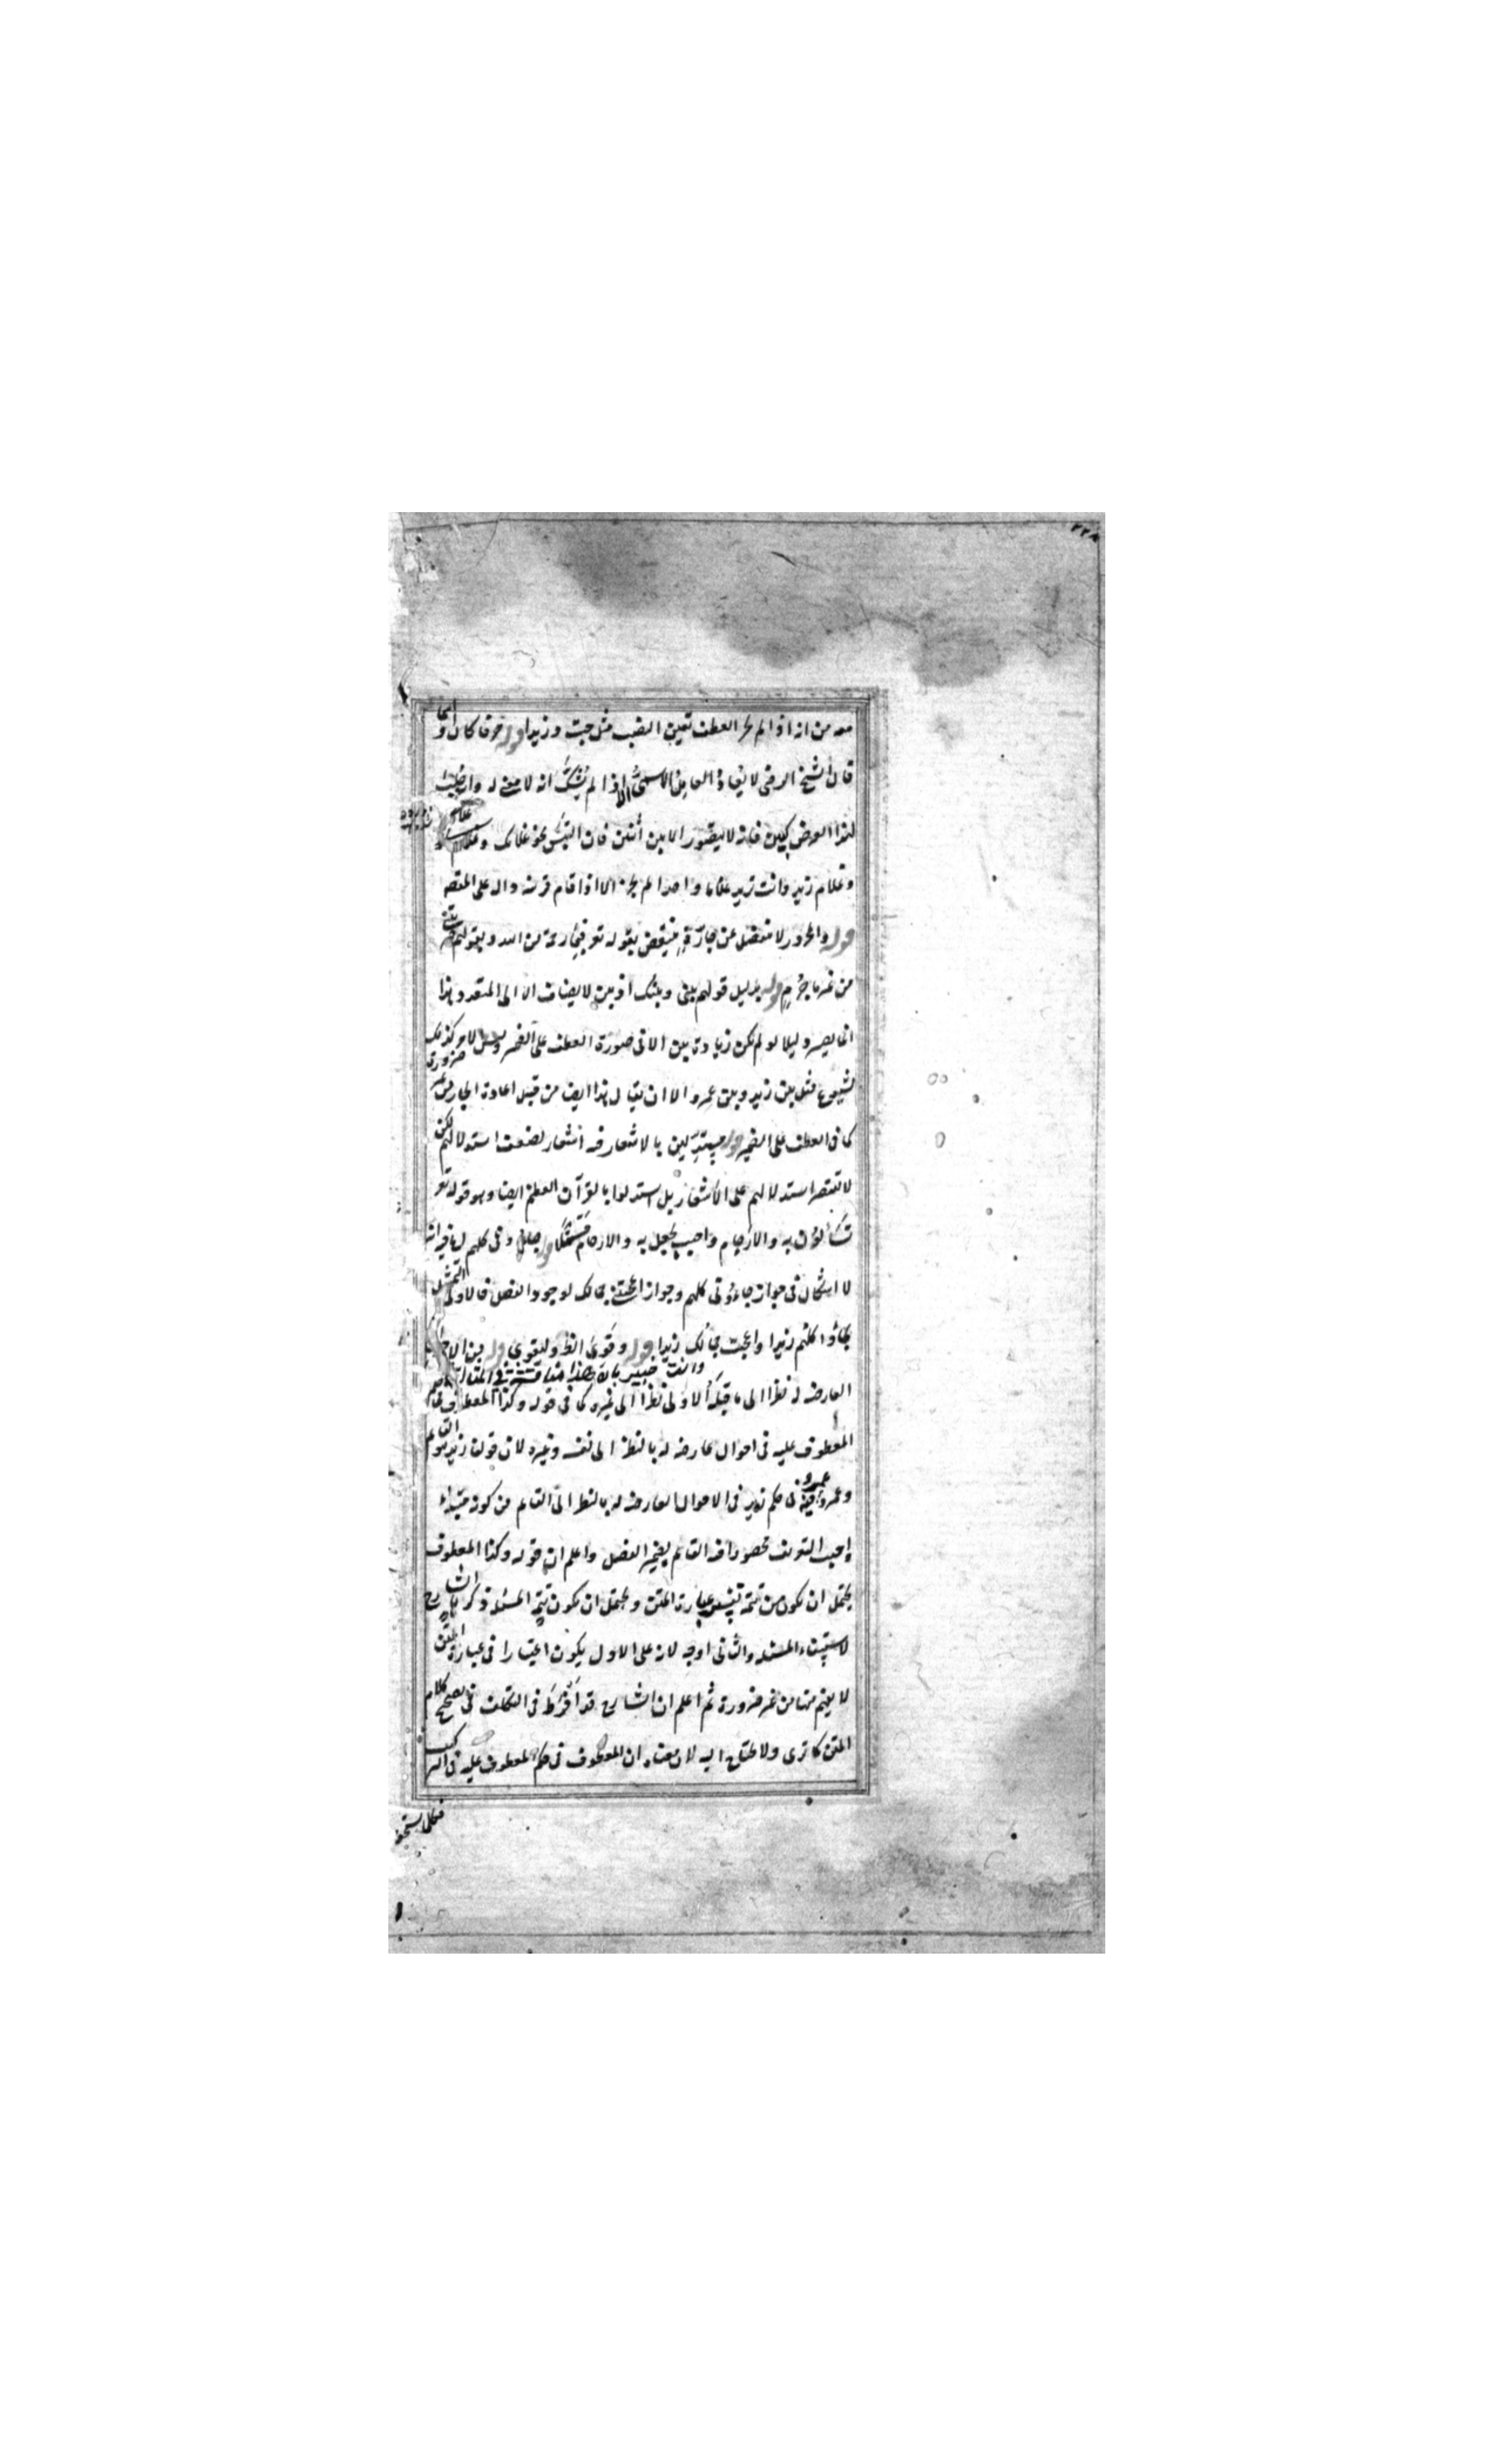 ٢٢٨
معه من انه اذا لم يجز العطف تعين النصب مثل جئت وزيدا قوله حرفا كان او اسما
قال الشيخ الرضي لا يعاد العامل الاسمى الا اذا لم يشك انه لا معنى له وانه جلب
لهذا الغرض كبين فانه لا يتصور الا بين اثنين فان التبس نحو غلامك وغلام
وغلام زيد وانت تريد غلاما واحدا لم يجز الا اذا قام قرينة دالة على المقصود
قوله والمجرور لا ينفصل عن جاره ينتقض بقوله تعالى فبما رحمة من الله وبقولهم
من غير ما جرم قوله بدليل قولهم بينى وبينك اذ بين لا يضاف الا الى المتعدد وهذا
انما يصير دليلا لو لم تكن زيادة بين الا فى صورة العطف على الضمير وليس الامر كذلك
لشيوع مثل بين زيد وبين عمرو الا ان يقال هذا ايضا من قبيل اعادة الجار من غير ضرورة
كما فى العطف على الضمير قوله مستدلين بالاشعار فيه اشعار لضعف استدلالهم لكن
لا يقتصر استدلالهم على الاشعار بل استدلوا بالقرآن العظيم ايضا وهو قوله تعالى
تساءلون به والارحام واجيب بجعل به والارحام قسما قوله جاءنى وفى كلهم
لا اشكال فى جواز جاءونى كلهم وجواز اعجبتنى جمالك لوجود الفصل فالاولى التمثيل
بجاؤا كلهم زيدا واعجبت جمالك زيدا قوله وقوى انظر وليقوى قوله من الاحوال
وانت خبير بان هذا مناقشة فى المثال
العارضة له نظرا الى ما قبله الاولى نظرا الى غيره كما فى قوله وكذا المعطوف فى حكم
المعطوف عليه فى احوال عارضة له بالنظر الى نفسه وغيره لان قولنا زيد هو القائم
وعمرو فيه عمرو فى حكم زيد فى الاحوال العارضة له بالنظر الى القائم من كونه مبتداء
واجب التعريف محصورا فيه القائم بضمير الفصل واعلم ان قوله وكذا المعطوف
يحتمل ان يكون من تتمة تفسير عبارة المتن ويحتمل ان يكون تتمة المسئلة ذكرها الشارح
لاستيفاء المسئلة والثانى اوجه لانه على الاول يكون اعتبارا فى عبارة المتن
لا يفهم منها من غير ضرورة ثم اعلم ان الشارح قد افرط فى التكلف فى تصحيح كلام
المتن كما ترى ولا يحتاج اليه لان معناه ان المعطوف فى حكم المعطوف عليه فى التركيب